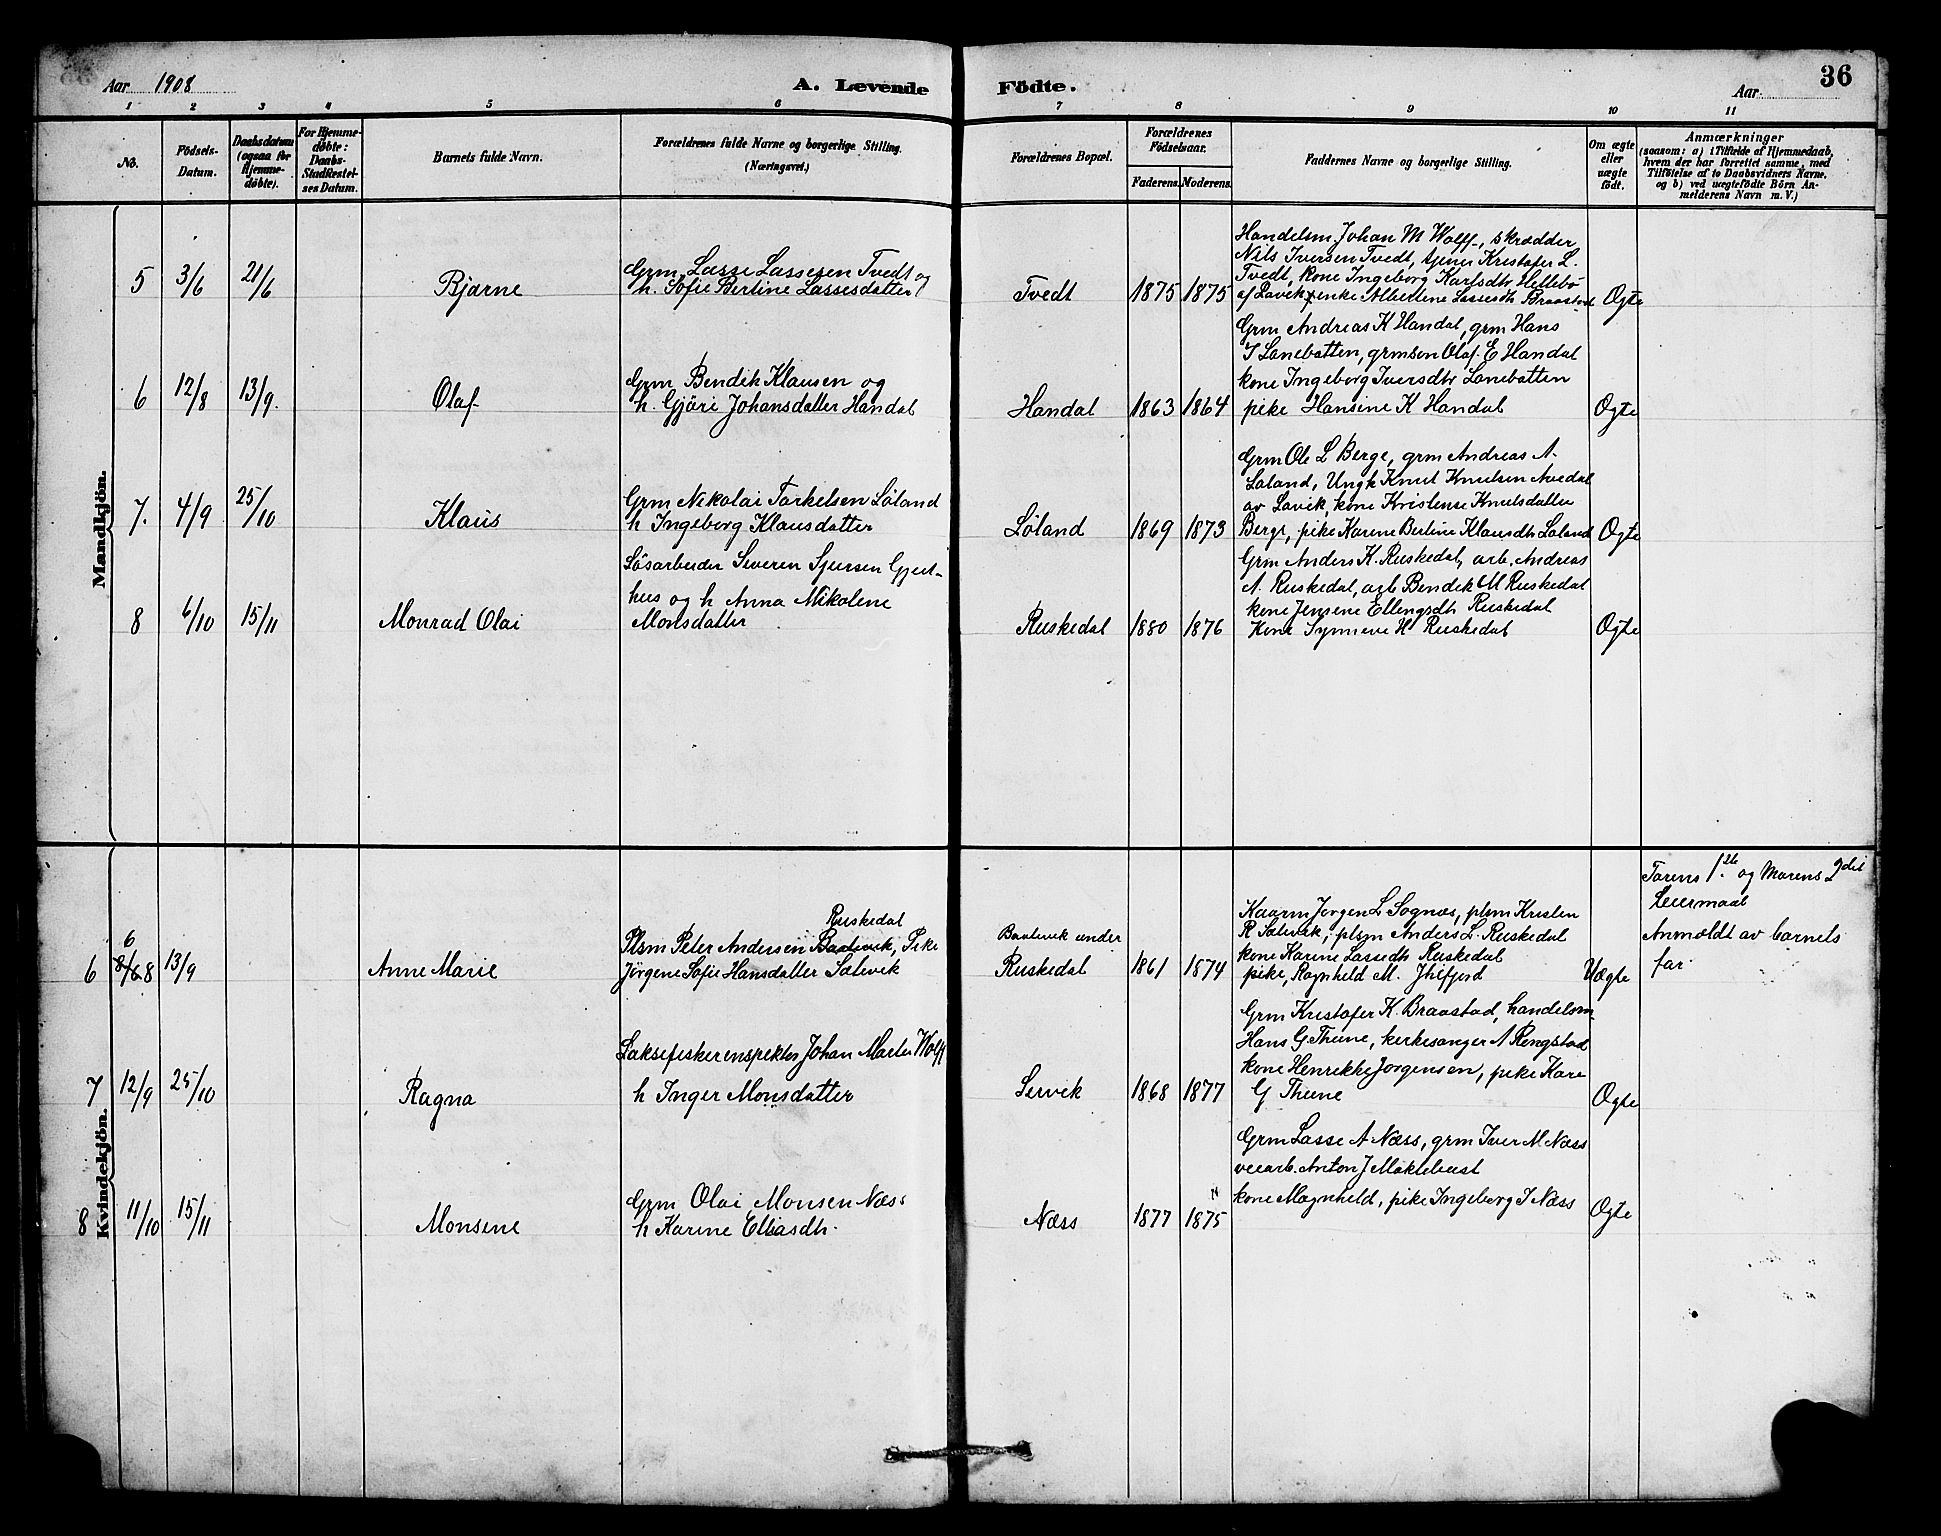 Aar 1908
A. Levende Födte.
Aar
36
1 2 3 4 5 6 7 8 9 10 11
No.
Födsels-
Datum.
Daabsdatum
(ogsaa for
Hjemme-
döbte).
For Hjemme-
döbte:
Daabs-
Stadfæstel-
ses Datum.
Barnets fulde Navn.
Forældrenes fulde Navne og borgerlige Stilling.
(Næringsvei.)
Forældrenes Bopæl.
Forældrenes
Födselsaar.
Faderens. Moderens.
Faddernes Navne og borgerlige Stilling.
Om ægte
eller
uægte
födt.
Anmærkninger
(saasom: a) i Tilfælde af Hjemmedaab,
hvem der har forrettet samme, med
Tilföielse af to Daabsvidners Navne,
og b) ved uægtefödte Börn An-
melderens Navn m. V.)
Mandkjön.
5 3/6 21/6
Bjarne
Grm Lasse Lassesen Tvedt og
h. Sofie Bertine Lassesdatter
Tvedt
1875 1875
Handelsm. Johan M Wolff, skrædder
Nils Iversen Tvedt, tjener Kristofer L.
Tvedt, kone Ingeborg Karlsdtr Hellebö
af Lavik, enke Albertine Lassesdtr Braastad
Ogte
6 12/8 13/9.
Olaf
Grm Bendik Klausen og
h. Gjöri Johansdatter Handal
Handal
1863 1864
Grm Andreas K Handal, grm Hans
I Lanebatten, grmsön Olaf E Handal
kone Ingeborg Iversdtr Lanebatten
pike Hansine K Handal
Ogte
7. 4/9 25/10
Klaus
Grm Nikolai Torkelsen Löland
h Ingeborg Klausdatter
Löland
1869 1873
Grm Ole L Berge, grm Andreas A.
Loland, Ungk Knut Knutsen Avedal
av Lavik, kone Kristense Knutsdatter
Berge, pike Karine Bertine Klausdtr Loland
Ogte
8 6/10 15/11
Monrad Olai
Lösarbeider Severin Sjursen Gjert-
hus og h Anna Nikoline
Monsdatter
Ruskedal
1880 1876
Grm Anders K. Ruskedal, arb. Andreas
A. Ruskedal, arb Bendik M Ruskedal
kone Jensine Ellingsdtr Ruskedal
Kone Synneve H Ruskedal
Ogte
Kvindekjön.
6 6 8/6.8 13/9
Anne Marie
Ruskedal
Plsm Peter Andersen Baatevik, Pike
Jörgine Sofie Hansdatter Sætevik
Baatevik under
Ruskedal
1861 1874
Kaarm Jorgen L Sognæs, plsm Kristen
R Sætevik, plsm Anders L. Ruskedal
kone Karine Lassedtr Ruskedal
pike, Ragnhild M. Ikjefjord
Uægte
Farens 1ste og Morens 2det
Leiermaal
Anmeldt av barnets
far.
7 12/9 25/10
Ragna
Laksefiskerinspektör Johan Martin Wolff
h Inger Monsdatter
Servik
1868 1877
Grm Kristofer K. Braastad, handelsm.
Hans G Thune, kirkesanger A Ringstad
kone Henrikke Jorgensen, pike Kari
G Thune
Ogte
8 11/10 15/11
Monsine
Grm Olai Monsen Næss
h Karine Eliasdtr.
Næss
1877 1875
Grm Lasse A Næss, grm Iver M. Næss
veiarb. Anton J Maktebust
kone Magnhild " , pike Ingeborg I Næss
Ogte